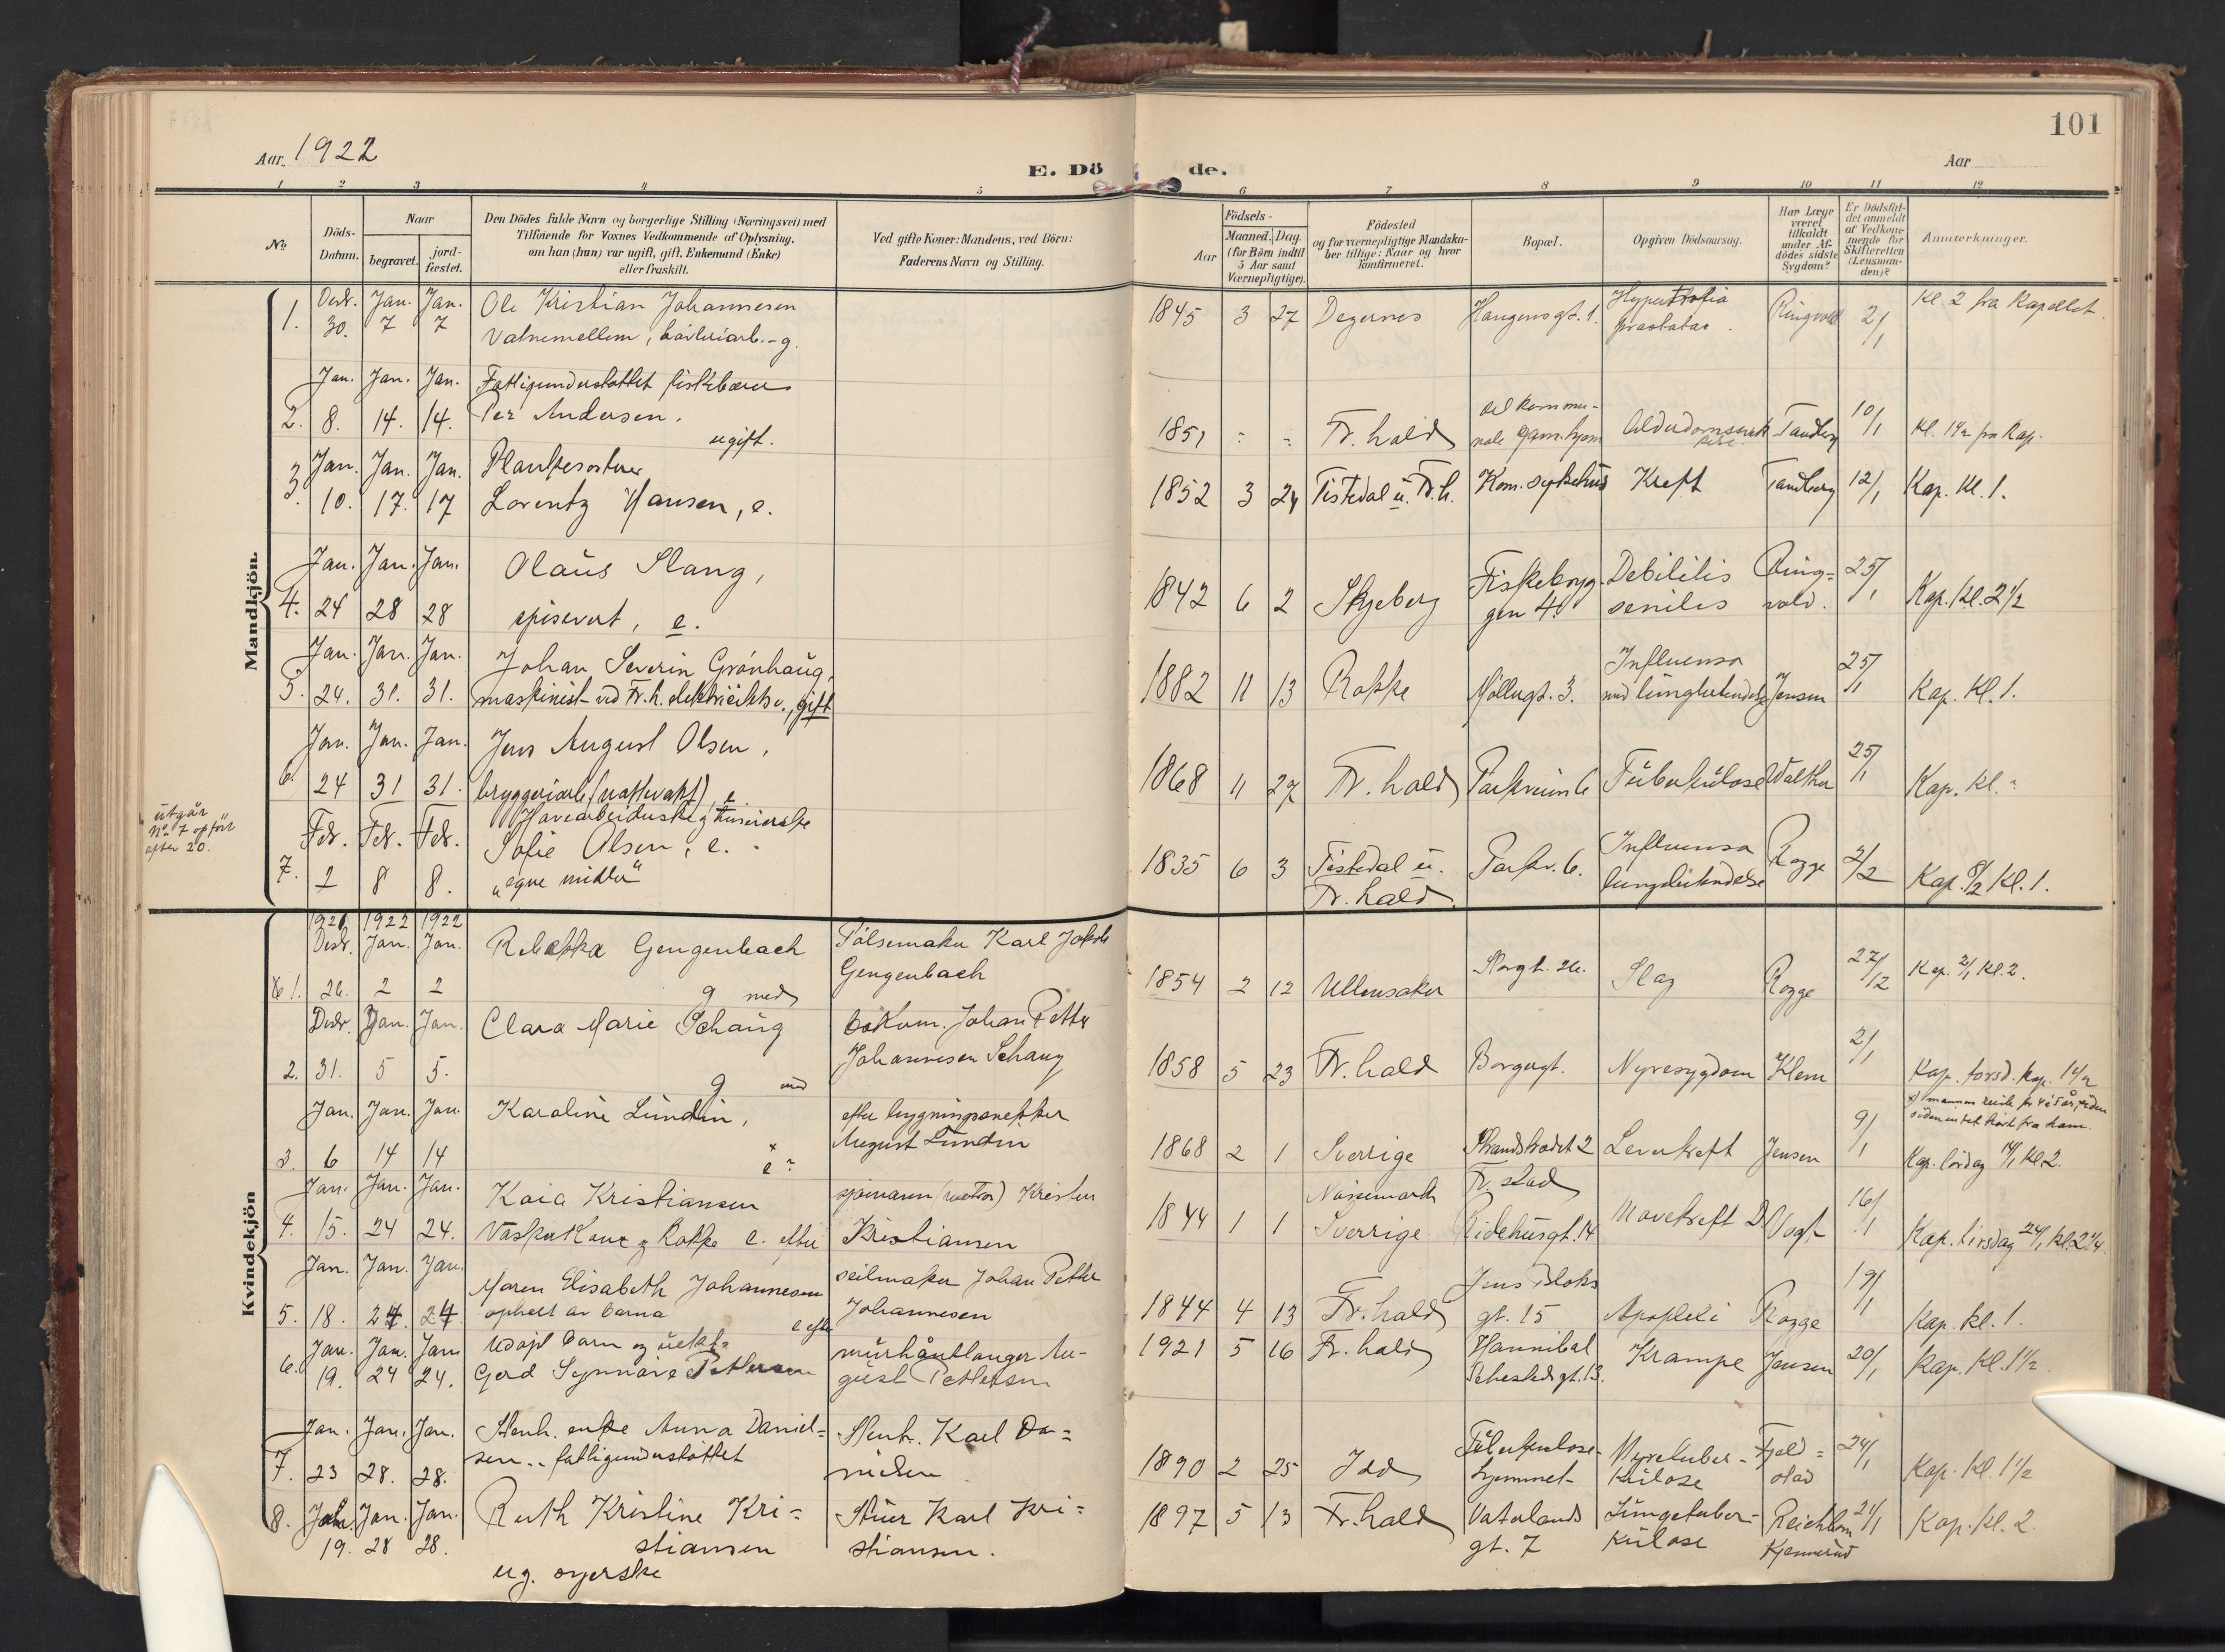 101
Aar 1922
Aar
E. Dö de.
1 2 3 4 5 6 7 8 9 10 11 12
No
Döds-Datum.
Naar
begravet.
jord-fæstet.
Den Dödes fulde Navn og borgerlige Stilling (Næringsvei) med
Tilföiende for Voxnes Vedkommende af Oplysning,
om han (hun) var ugift, gift, Enkemand (Enke)
eller fraskilt.
Ved gifte Koner: Mandens, ved Börn:
Faderens Navn og Stilling.
Födsels-
Aar
Maaned. Dag.
(for Börn indtil
5 Aar samt
Værnepligtige).
Födested
og for værnepligtige Mandska-
ber tillige: Naar og hvor
konfirmeret.
Bopæl.
Opgiven Dödsaarsag.
Har Læge
været
tilkaldt
under Af-
dödes sidste
Sygdom?
Er Dödsfal-
det anmeldt
af Vedkom-
mende for
Skifteretten
(Lensman-
den)?
Anmærkninger.
Mandkjön.
1. Desb. Jan. Jan. Ole Kristian Johannesen 1845 3 27 Degernes Haugensgt. 1. Hypertrofia Ringvold 2/1 Kl. 2 fra Kapellet.
30. 7 7 Vatnemellem, -g. prostatae.
Jan. Jan. Jan. Fattigunderstöttet
2. 8. 14. 14. Per Andersen. 1851 Fr.hald del kommu-nale gam.hjem Tandberg 10/1 Kl. 1 1/2 fra Kap.
ugift.
Jan. Jan. Jan. Plankesorterer
3. 10. 17. 17 Lorentz Hansen, e. 1852 3 24 Tistedal u. Fr.h. Kom. sykehus Kreft Tandberg 12/1 Kap. Kl. 1.
Jan. Jan. Jan. Olaus Stang, Fiskebryg- Debilitis Ring- 25/1
4. 24 28 28 spisevert, e. 1842 6 2 Skjeberg gen 4 senilis vold. Kap. Kl. 2 1/2
Jan. Jan. Jan. Johan Severin Grönhaug, Influensa 25/1
5. 24. 31. 31. maskinist ved Fr.h. gift 1882 11 13 Rokke Möllergt. 3. med lungebetendelse Jensen Kap. Kl. 1.
Jan. Jan. Jan. Jens August Olsen, 25/1
6. 24 31 31. bryggeriarb. (nattevakt), e. 1868 11 27 Fr.hald Parkveien 6 Tuberkulose Walther Kap. Kl.
utgår
No 7 opfört
efter 20.
Feb. Feb. Feb. Sofie Olsen, e. Influensa
7. 2 8 8. "egne midler" 1835 6 3 Tistedal u. Fr.hald Parkv. 6. lungebetendelse Rogge 2/2 Kap. 8/2 Kl. 1.
Kvindekjön
1921 1922 1922
Desb. Jan. Jan. Rebekka Gengenbach Pölsemaker Karl Jakob
1. 26. 2 2 g med Gengenbach 1854 2 12 Ullensaker Storgt. 26. Slag Rogge 27/12 Kap. 2/1 Kl. 2.
Desb. Jan. Jan. Clara Marie Schaug Johan Petter
2. 31. 5 5. g med Johannesen Schaug 1858 5 23 Fr.hald Borgergt. Nyresygdom Klem 2/1 Kap. torsd. Kap. 1 1/2
Jan. Jan. Jan. Karoline Lundin, efter bygningssnekker
3. 6 14 14 e August Lundin 1868 2 1 Sverrige Strandstrædet 2 Leverkreft Jensen 9/1 Kap. lördag 14/1 Kl. 2.
x) mannen reiste for 4 à 5 år siden
siden intet hört fra ham.
Jan. Jan. Jan. Kaia Kristiansen sjömann Kristen Fr.stad
4. 15. 24 24. Vaskerkone g Rokke e. efter Kristiansen 1844 1 1 Sverrige Ridehusgt. 14 Mavekreft Vogt 16/1 Kap. tirsdag 24/1 kl. 2 1/4.
Jan. Jan. Jan. Maren Elisabeth Johannesen seilmaker Johan Petter
5. 18. 24. 24 ophett av barna e efter Johannesen 1844 4 13 Fr.hald Jens Bloks gt. 15 Apopleksi Rogge 19/1 Kap. Kl. 1.
Jan. Jan. Jan. Udöpt barn murhåndlanger Au-
6. 19. 24 24. Gerd Synnöve Pettersen gust Pettersen 1921 5 16 Fr.hald Hannibal Sehestedsgt. 13. Krampe Jensen 20/1 Kap. Kl. 1 1/2.
Jan. Jan. Jan. Stenh. enke Anna Daniel- Stenh. Karl Da-
7. 23 28. 28. sen .. fattigunderstöttet nielsen 1890 2 25 Idd Tuberkulose-hjemmet Nyretuber-kulose Fjeld-stad 24/1 Kap. Kl. 1 1/2
8. Jan. Jan. Jan. Ruth Kristine Kri- Stuer Karl Kri- 1897 5 13 Fr.hald Vaterlands Lungetuber- 21/1 Kap. kl. 2.
19. 28 28. stiansen stiansen. gt. 7 kulose Kjennerud
ug. syerske